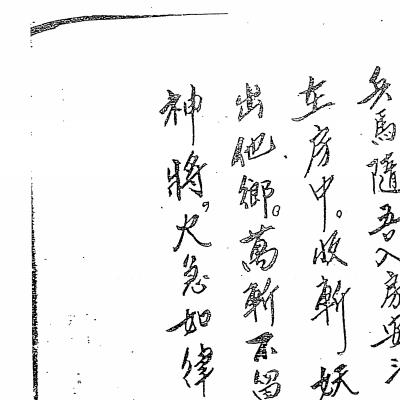 兵馬隨吾入房要
在房中。收斬妖
出他鄉。萬斬不留
神將。火急如律